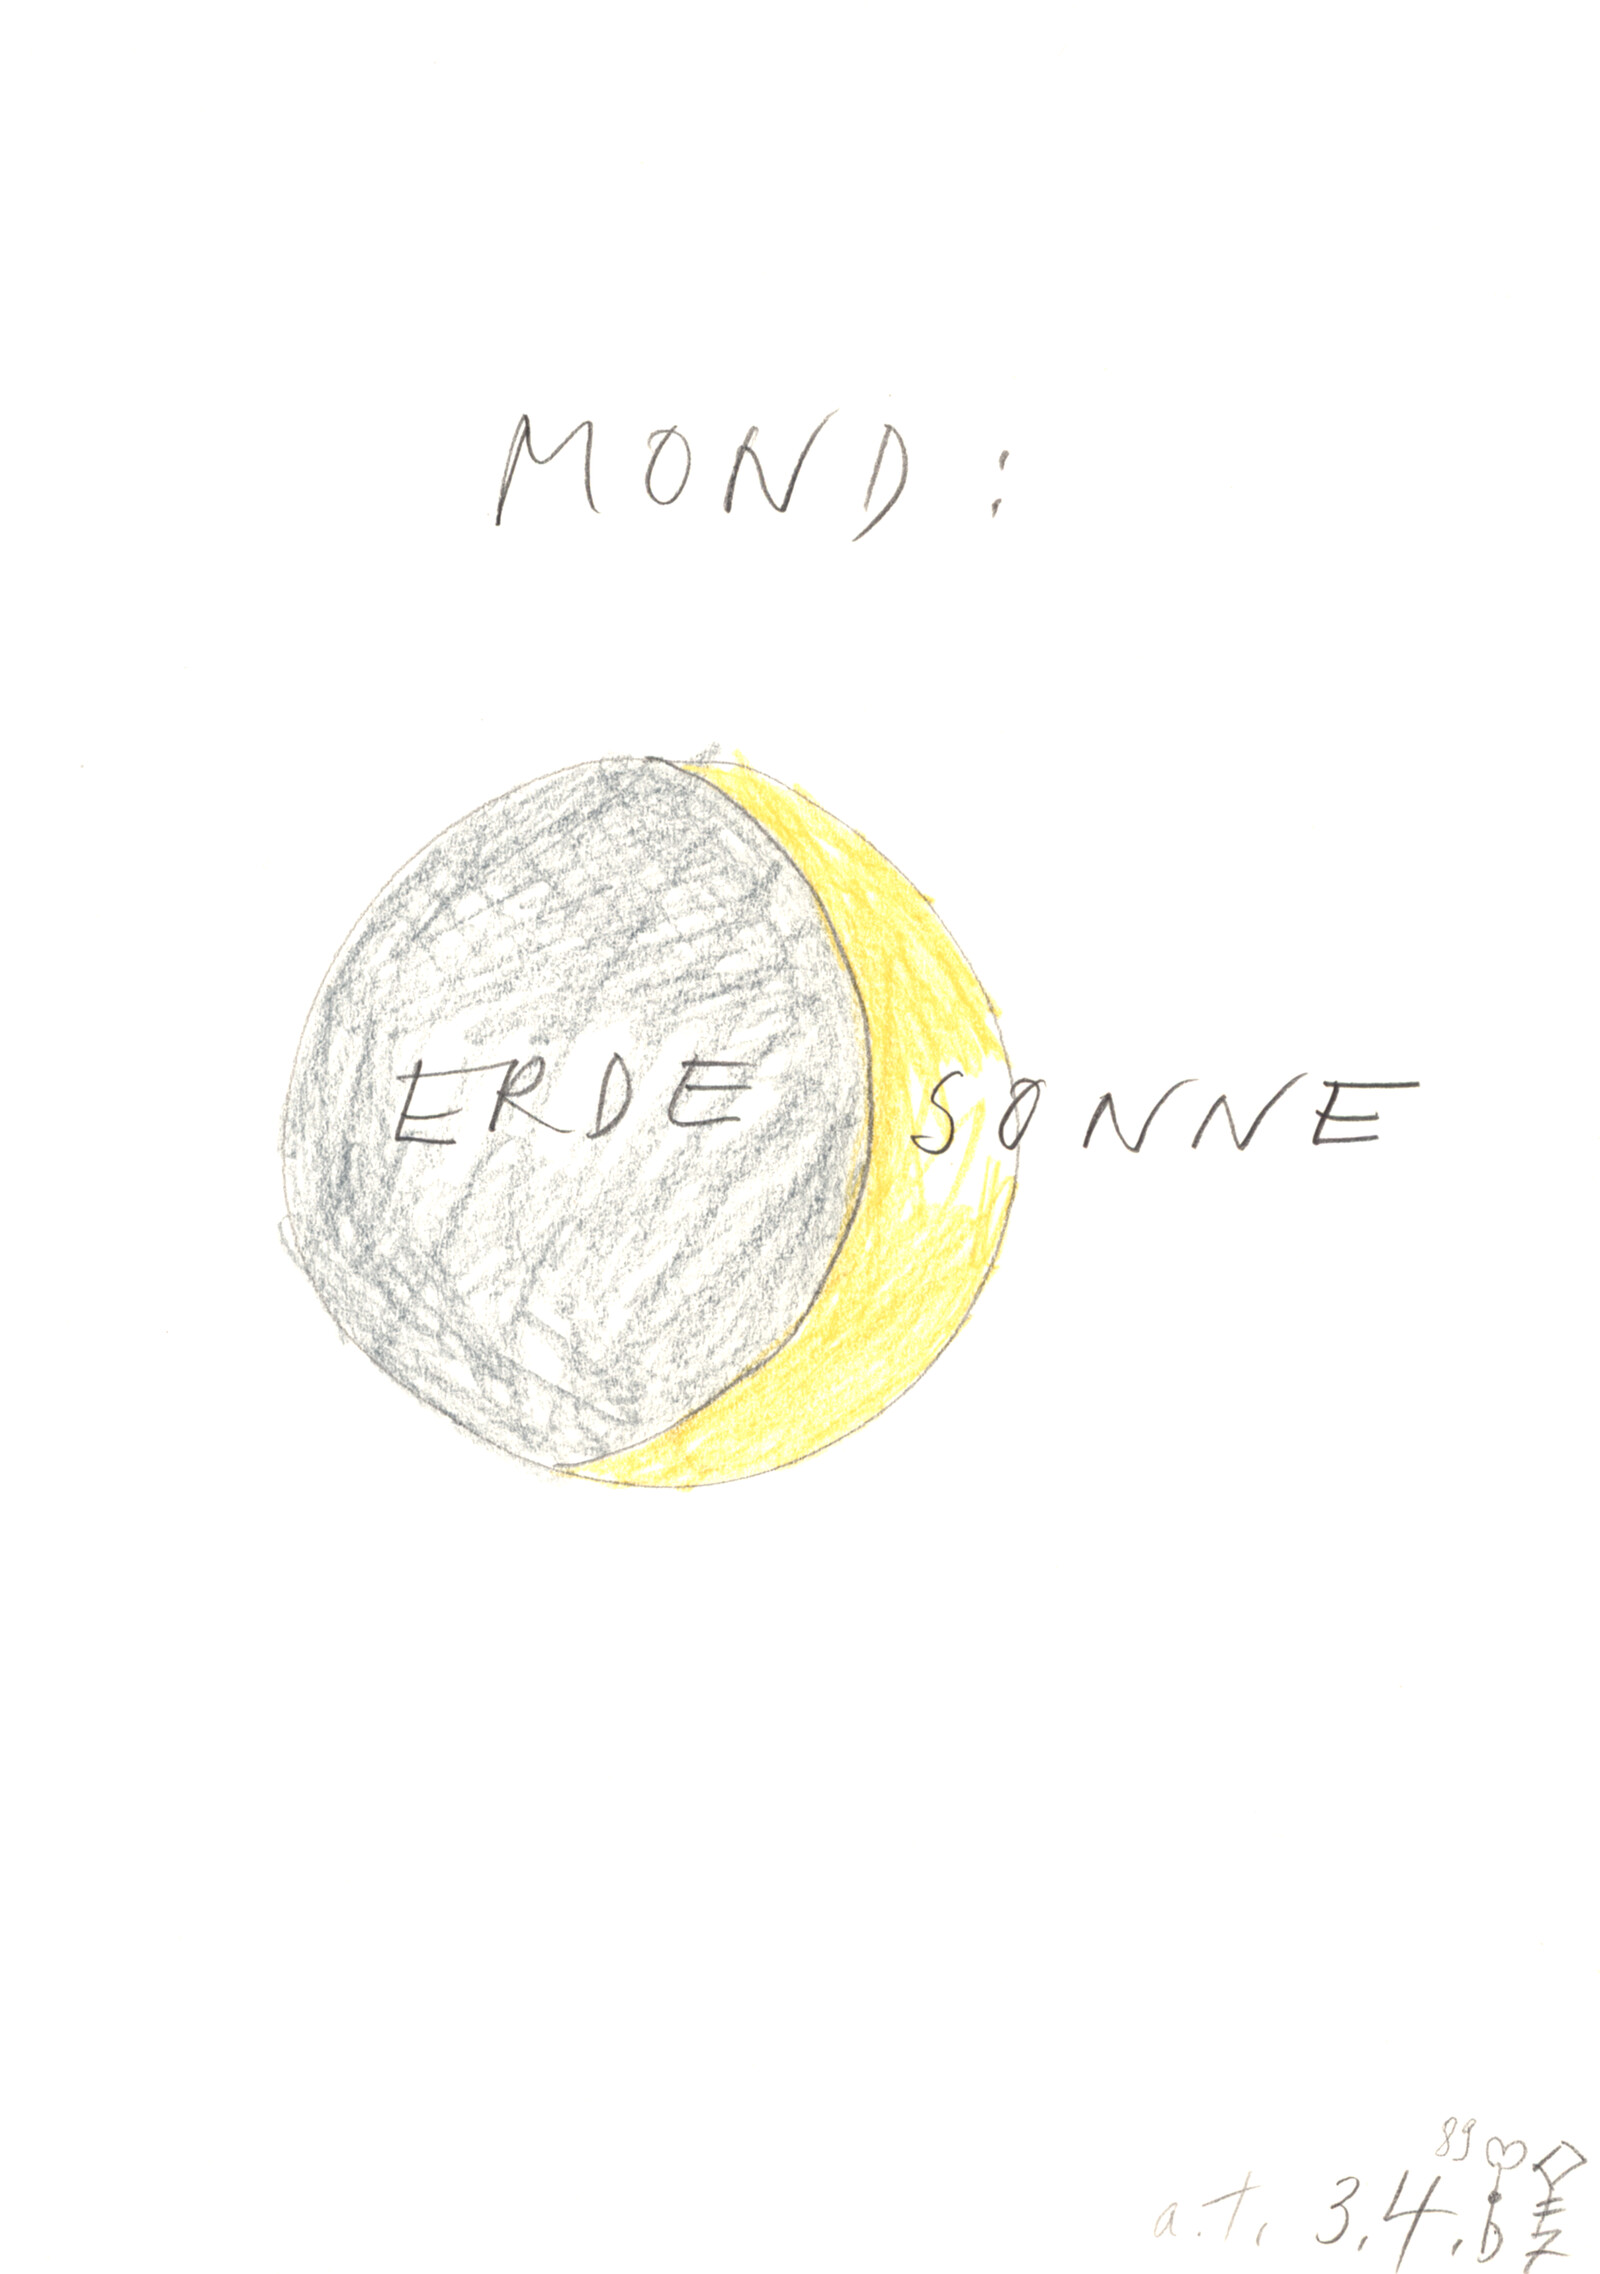 MOND:
ERDE SONNE
89
a.t. 3.4.